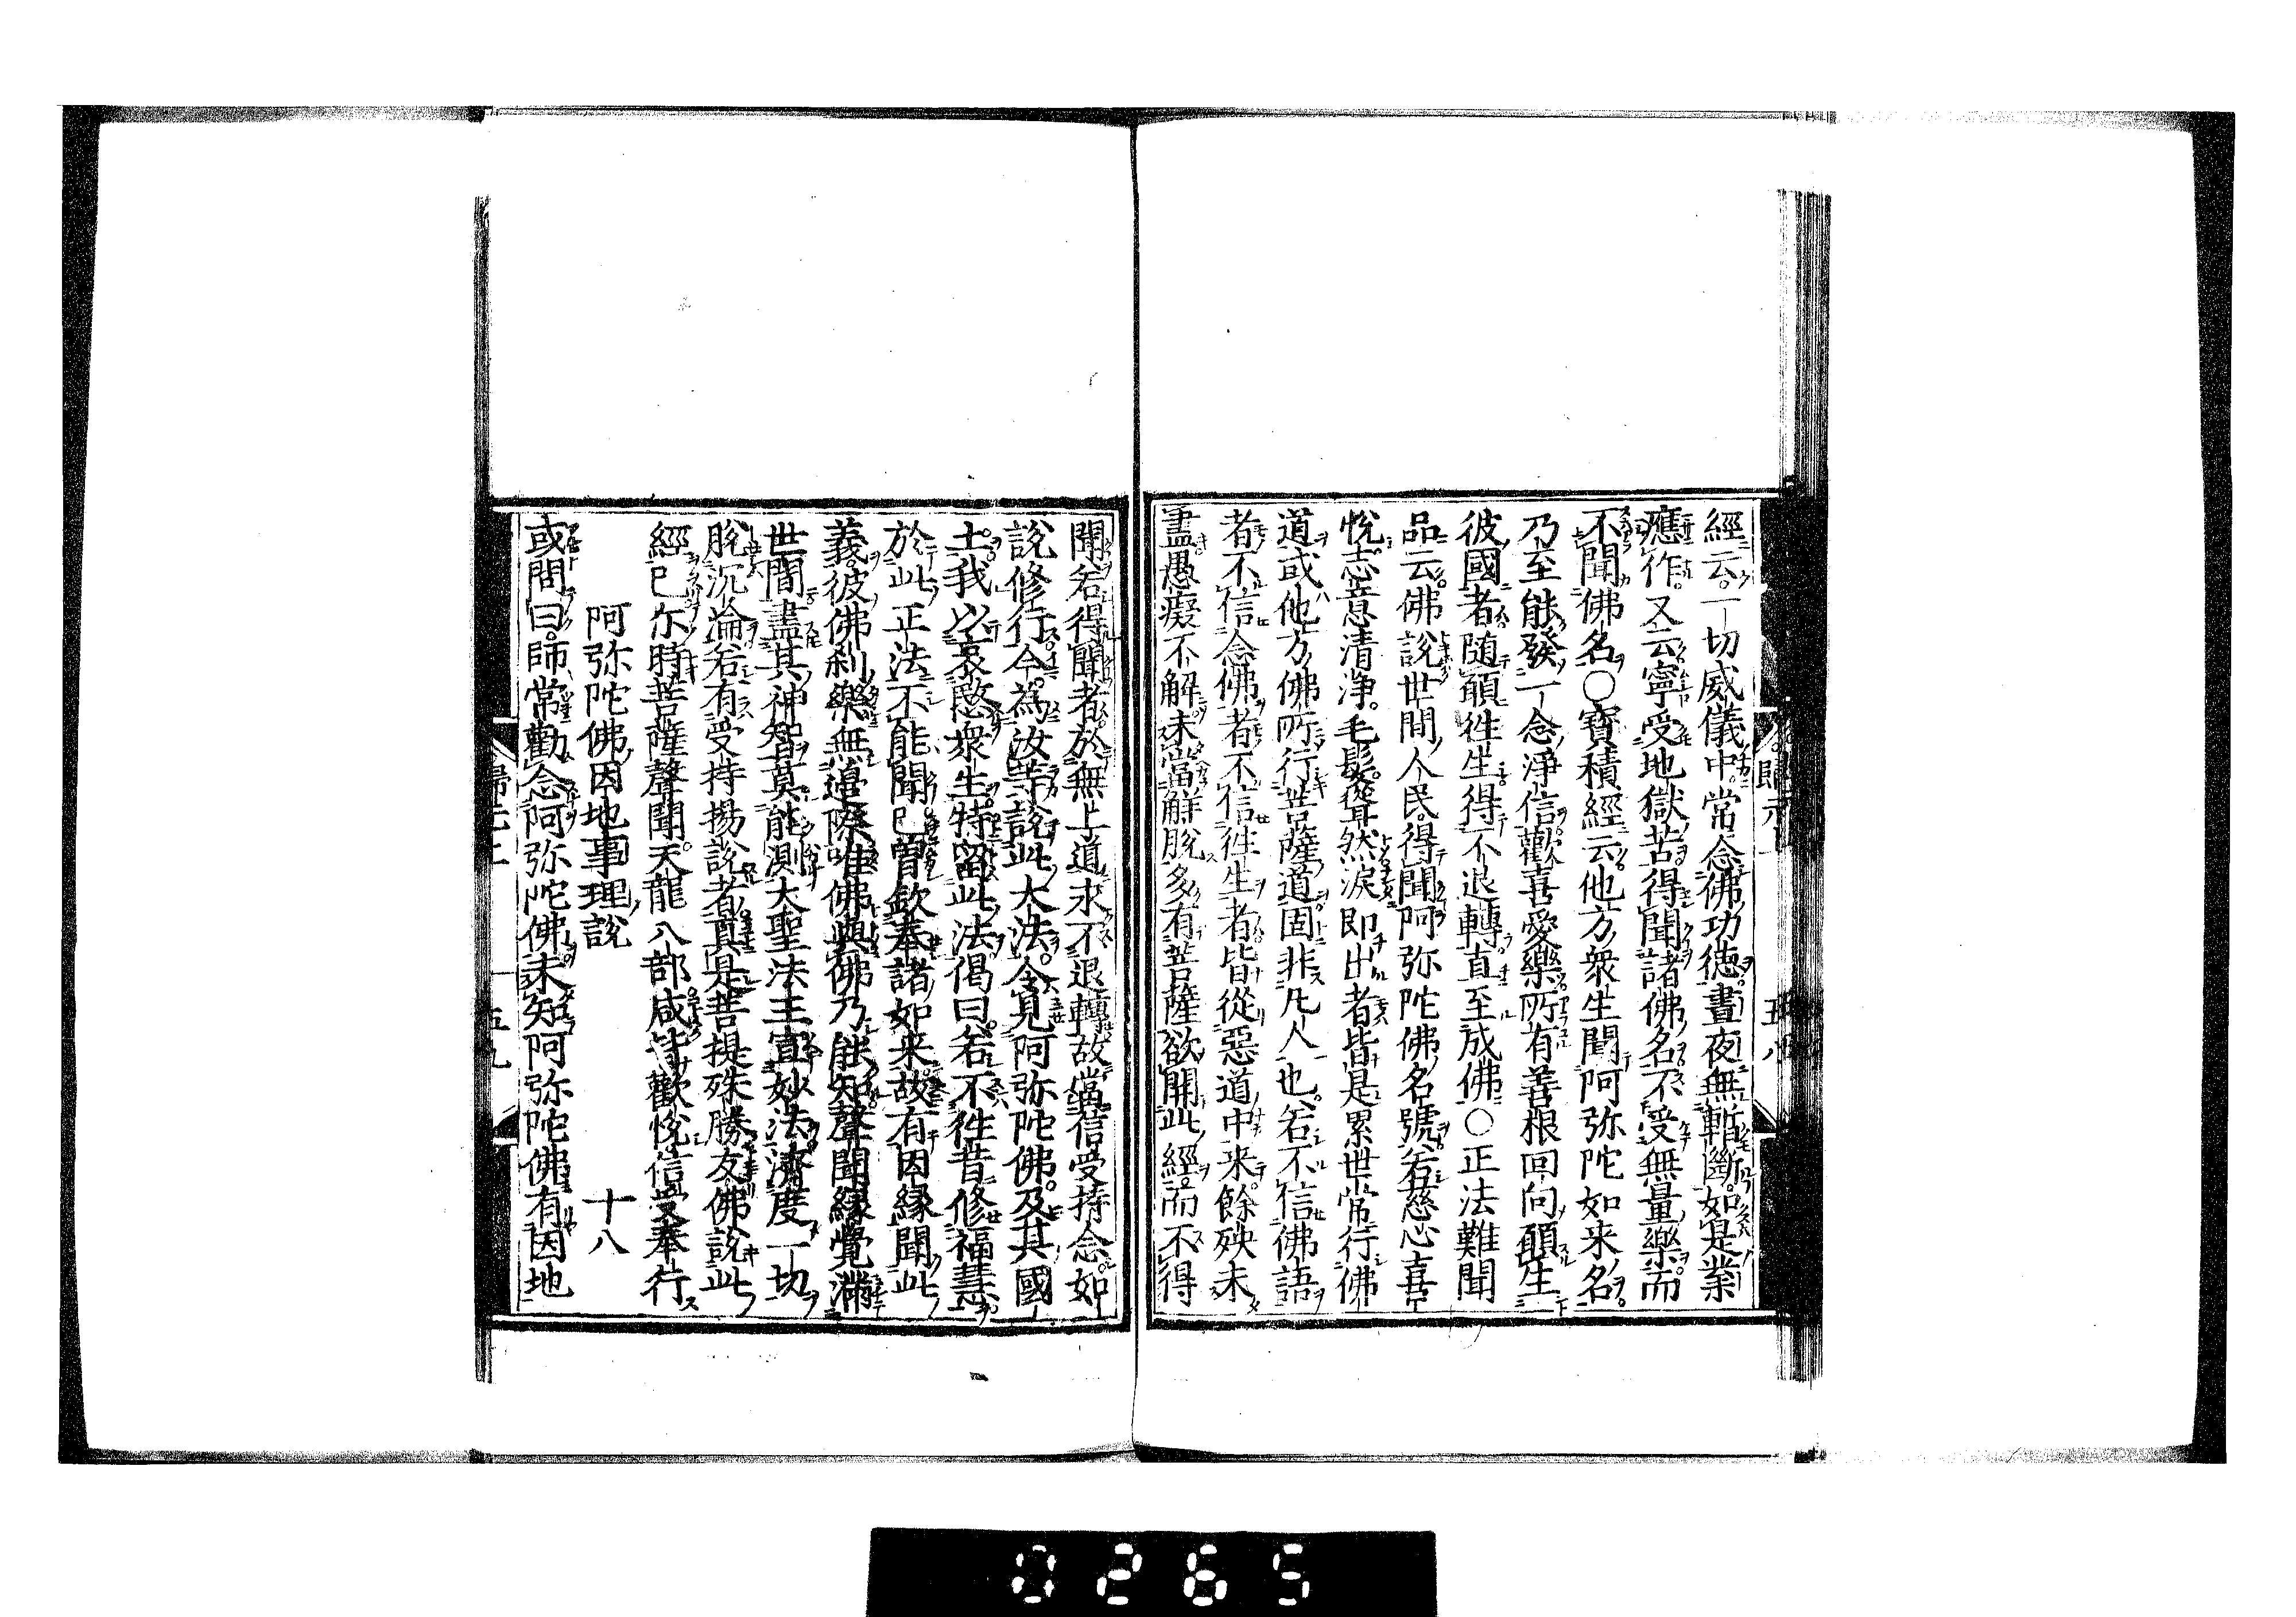 經云一切威儀中常念佛功德晝夜無暫斷如是業
應作又云寧受地獄苦得聞諸佛名不受無量樂而
不聞佛名○寶積經云他方衆生聞阿弥陀如来名
乃至能發一念淨信歡喜愛樂所有善根回向願生
彼國者随願徃生得不退轉直至成佛○正法難聞
品云佛說世間人民得聞阿弥陀佛名號若慈心喜
悅志意清淨毛髮聳然淚即出者皆是累世常行佛
道或他方佛所行菩薩道固非凡人也若不信佛語
者不信念佛者不信徃生者皆從惡道中来餘殃未
盡愚癡不解未當解脫多有菩薩欲聞此經而不得
聞若得聞者於無上道求不退轉故當信受持念如
說修行今為汝等說此大法令見阿弥陀佛及其國
土我以哀愍衆生特留此法偈曰若不徃昔修福慧
於此正法不能聞已曽欽奉諸如来故有因縁聞此
義彼佛刹樂無邊際唯佛與佛乃能知聲聞縁覺滿
世間盡其神智莫能測大聖法王宣妙法濟度一切
脫沉淪若有受持揚說者真是菩提殊勝友佛說此
經已尓時菩薩聲聞天龍八部咸皆歡悅信受奉行
阿弥陀佛因地事理說 十八
或問曰師常勸念阿弥陀佛未知阿弥陀佛有因地
五八
歸元二
五九
0265